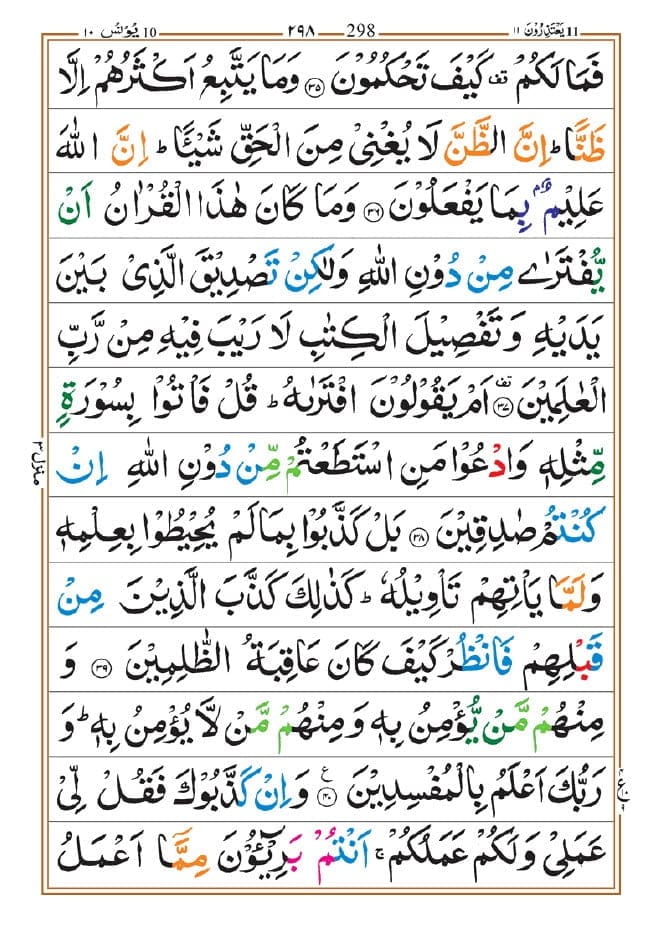 11 يَعْتَذِرُوْنَ ١١ 298 ٢٩٨ 10 يُوْنُس ١٠
فَمَا لَكُمْ قف كَيْفَ تَحْكُمُوْنَ ۝٣٥ وَمَا يَتَّبِعُ اَكْثَرُهُمْ اِلَّا
ظَنًّا ؕ اِنَّ الظَّنَّ لَا يُغْنِىْ مِنَ الْحَقِّ شَيْـًٔا ؕ اِنَّ اللّٰهَ
عَلِيْمٌۢ بِمَا يَفْعَلُوْنَ ۝٣٦ وَمَا كَانَ هٰذَا الْقُرْاٰنُ اَنْ
يُّفْتَرٰى مِنْ دُوْنِ اللّٰهِ وَلٰكِنْ تَصْدِيْقَ الَّذِىْ بَيْنَ
يَدَيْهِ وَتَفْصِيْلَ الْكِتٰبِ لَا رَيْبَ فِيْهِ مِنْ رَّبِّ
الْعٰلَمِيْنَ ۝٣٧ قف اَمْ يَقُوْلُوْنَ افْتَرٰىهُ ؕ قُلْ فَاْتُوْا بِسُوْرَةٍ
مِّثْلِهٖ وَادْعُوْا مَنِ اسْتَطَعْتُمْ مِّنْ دُوْنِ اللّٰهِ اِنْ
منزل ٣
كُنْتُمْ صٰدِقِيْنَ ۝٣٨ بَلْ كَذَّبُوْا بِمَا لَمْ يُحِيْطُوْا بِعِلْمِهٖ
وَلَمَّا يَاْتِهِمْ تَاْوِيْلُهٗ ؕ كَذٰلِكَ كَذَّبَ الَّذِيْنَ مِنْ
قَبْلِهِمْ فَانْظُرْ كَيْفَ كَانَ عَاقِبَةُ الظّٰلِمِيْنَ ۝٣٩ وَ
مِنْهُمْ مَّنْ يُّؤْمِنُ بِهٖ وَمِنْهُمْ مَّنْ لَّا يُؤْمِنُ بِهٖ ؕ وَ
رَبُّكَ اَعْلَمُ بِالْمُفْسِدِيْنَ ۝٤٠ ع وَاِنْ كَذَّبُوْكَ فَقُلْ لِّىْ
عَمَلِىْ وَلَكُمْ عَمَلُكُمْ ۚ اَنْتُمْ بَرِيْٓـُٔوْنَ مِمَّاۤ اَعْمَلُ